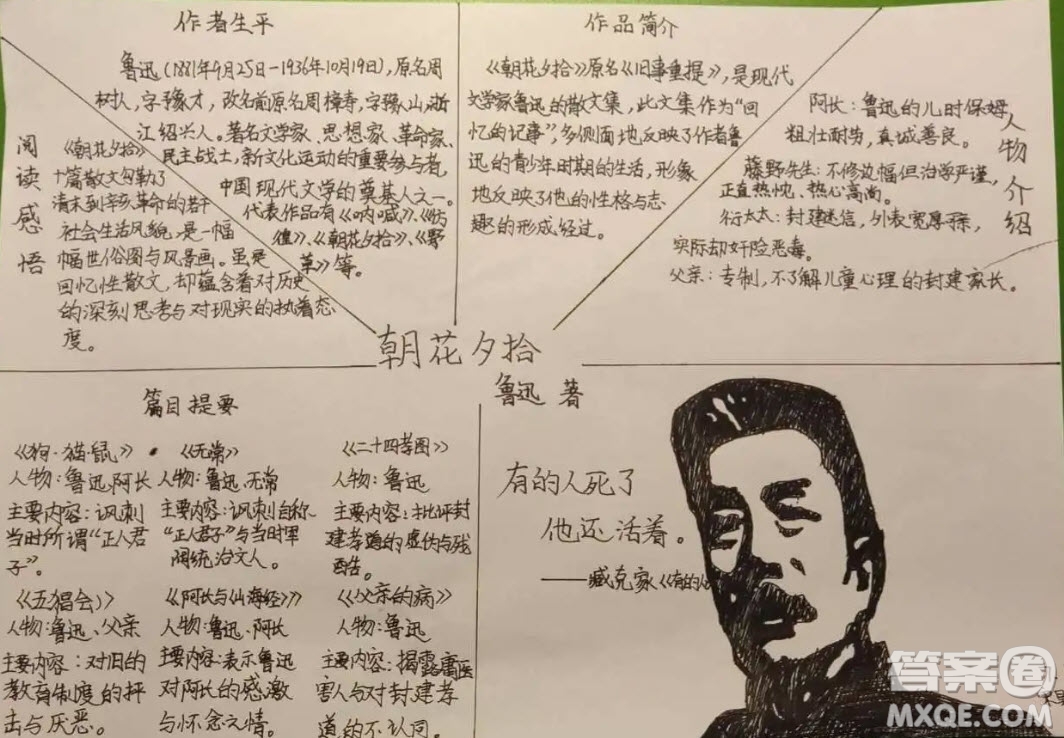 作者生平
鲁迅(1881年9月25日-1936年10月19日),原名周
树人,字豫才,改名前原名周樟寿,字豫山,浙
江绍兴人。著名文学家、思想家、革命家、
民主战士,新文化运动的重要参与者,
中国现代文学的奠基人之一。
代表作品有《呐喊》、《彷
徨》、《朝花夕拾》、《野
草》等。
作品简介
《朝花夕拾》原名《旧事重提》,是现代
文学家鲁迅的散文集,此文集作为“回
忆的记事”,多侧面地反映了作者鲁
迅的青少年时期的生活,形象
地反映了他的性格与志
趣的形成经过。
人物介绍
阿长:鲁迅的儿时保姆,
粗壮耐劳,真诚善良。
藤野先生:不修边幅但治学严谨,
正直热忱、热心高尚。
衍太太:封建迷信,外表宽厚
实际却奸险恶毒。
父亲:专制,不了解儿童心理的封建家长。
阅读感悟
《朝花夕拾》
十篇散文勾勒了
清末到辛亥革命的若干
社会生活风貌,是一幅
幅世俗图与风景画。虽是
回忆性散文,却蕴含着对历史
的深刻思考与对现实的执着态
度。
朝花夕拾
鲁迅 著
篇目提要
《狗·猫·鼠》
人物:鲁迅、阿长
主要内容:讽刺
当时所谓“正人君
子”。
《无常》
人物:鲁迅、无常
主要内容:讽刺自称
“正人君子”与当时军
阀统治文人。
《二十四孝图》
人物:鲁迅
主要内容:批评封
建孝道的虚伪与残
酷。
《五猖会》
人物:鲁迅、父亲
主要内容:对旧的
教育制度的抨
击与厌恶。
《阿长与山海经》
人物:鲁迅、阿长
主要内容:表示鲁迅
对阿长的感激
与怀念之情。
《父亲的病》
人物:鲁迅
主要内容:揭露庸医
害人与对封建孝
道的不认同。
有的人死了
他还活着。
——臧克家《有的人
答案圈
MXQE.COM